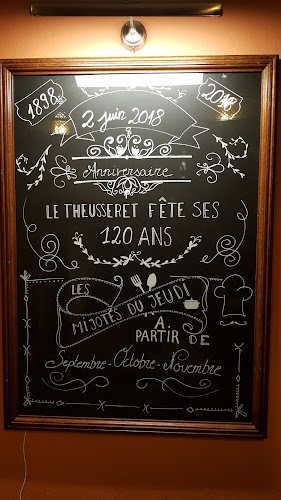 1898
2018
2 juin 2018
Anniversaire
LE THEUSSERET FÊTE SES
120 ANS
LES
MIJOTÉS DU JEUDI
A
PARTIR DE
Septembre-Octobre-Novembre